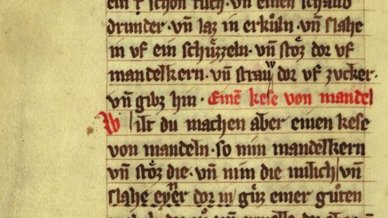 ein rſchön tuch · vn̄ einen ſchaub
drunder · vn̄ laz in erkůln · vn̄ ſlahe
in vf ein ſchüzzeln · vn̄ ſtöz dor vf
mandelkern · vn̄ ſtraw dor vf zucker ·
vn̄ gibz hin · Einē keſe von mandel
Wilt du machen aber einen keſe
von mandeln · ſo nim mandelkern
vn̄ ſtöz die · vn̄ nim die milich vn̄
ſlahe eyer dor in güz einer gůten